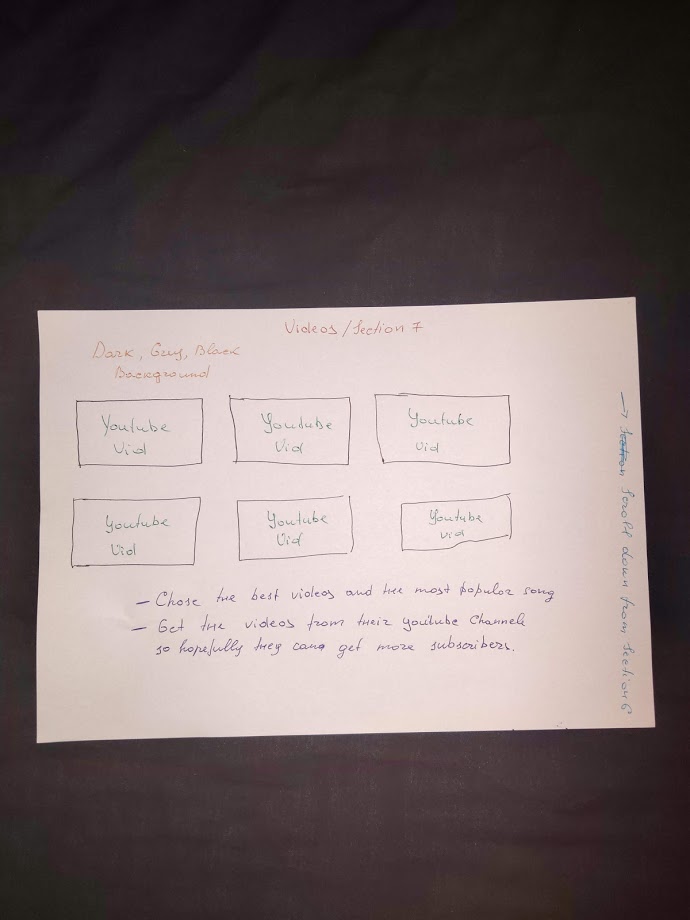 Videos/Section 7
Dark, Grey, Black
Background
Youtube
Vid
Youtube
Vid
Youtube
Vid
Youtube
Vid
Youtube
Vid
Youtube
Vid
- Chose the best videos and the most popular song
- Get the videos from their Youtube Channels
so hopefully they can get more subscribers.
→ Scroll down from Section 6